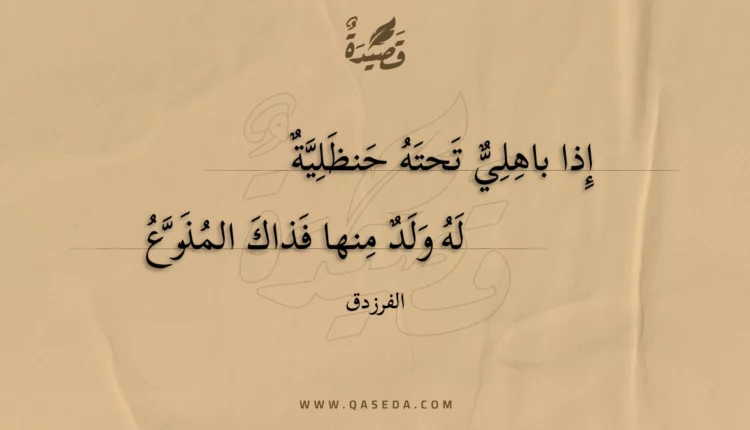 قَصِيدَةٌ
إِذا باهِلِيٌّ تَحتَهُ حَنظَلِيَّةٌ
لَهُ وَلَدٌ مِنها فَذاكَ المُذَرَّعُ
الفرزدق
WWW.QASEDA.COM